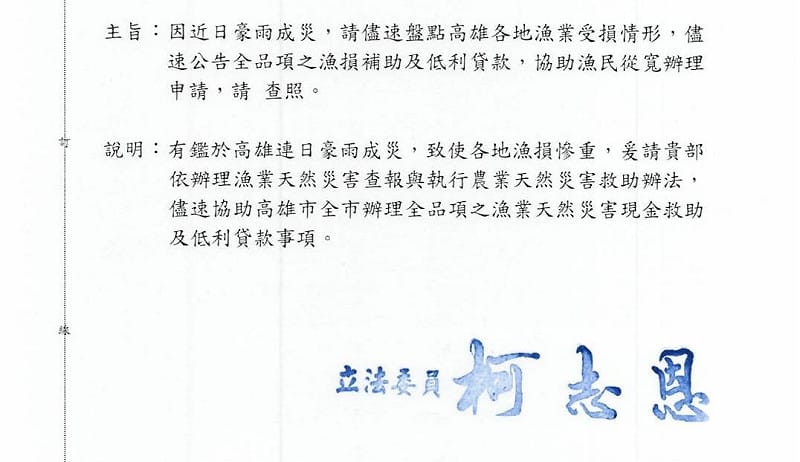 主旨：因近日豪雨成災，請儘速盤點高雄各地漁業受損情形，儘
速公告全品項之漁損補助及低利貸款，協助漁民從寬辦理
申請，請 查照。
訂
說明：有鑑於高雄連日豪雨成災，致使各地漁損慘重，爰請貴部
依辦理漁業天然災害查報與執行農業天然災害救助辦法，
儘速協助高雄市全市辦理全品項之漁業天然災害現金救助
及低利貸款事項。
線
立法委員 柯志恩